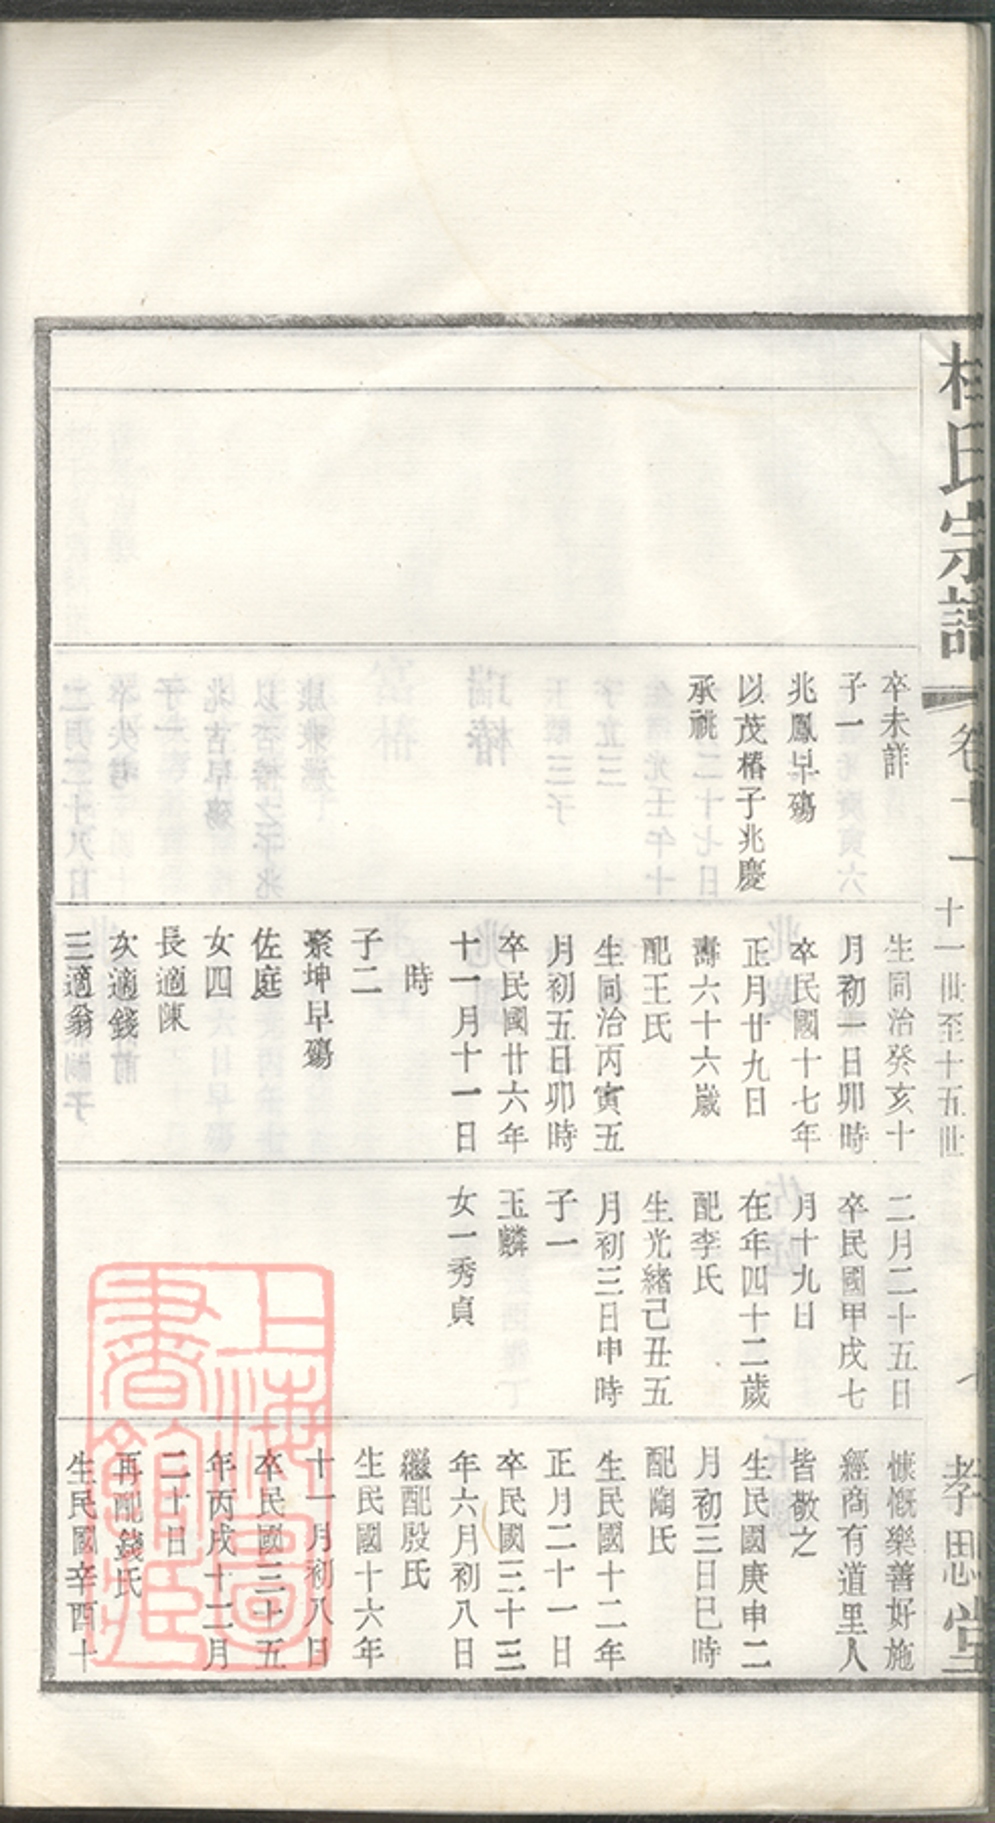 桂氏宗譜
卷十一
十一世至十五世
孝思堂
卒未詳
子一
兆鳳早殤
以茂椿子兆慶
承祧
生同治癸亥十
月初一日卯時
卒民國十七年
正月廿九日
壽六十六歲
配王氏
生同治丙寅五
月初五日卯時
卒民國廿六年
十一月十一日
時
子二
聚坤早殤
佐庭
女四
長適陳
次適錢
三適翁
二月二十五日
卒民國甲戌七
月十九日
在年四十二歲
配李氏
生光緒己丑五
月初三日申時
子一
玉麟
女一秀貞
慷慨樂善好施
經商有道里人
皆敬之
生民國庚申二
月初三日巳時
配陶氏
生民國十二年
正月二十一日
卒民國三十三
年六月初八日
繼配殷氏
生民國十六年
十一月初八日
卒民國三十五
年丙戌十二月
二十日
再配錢氏
生民國辛酉十
上海圖書館藏